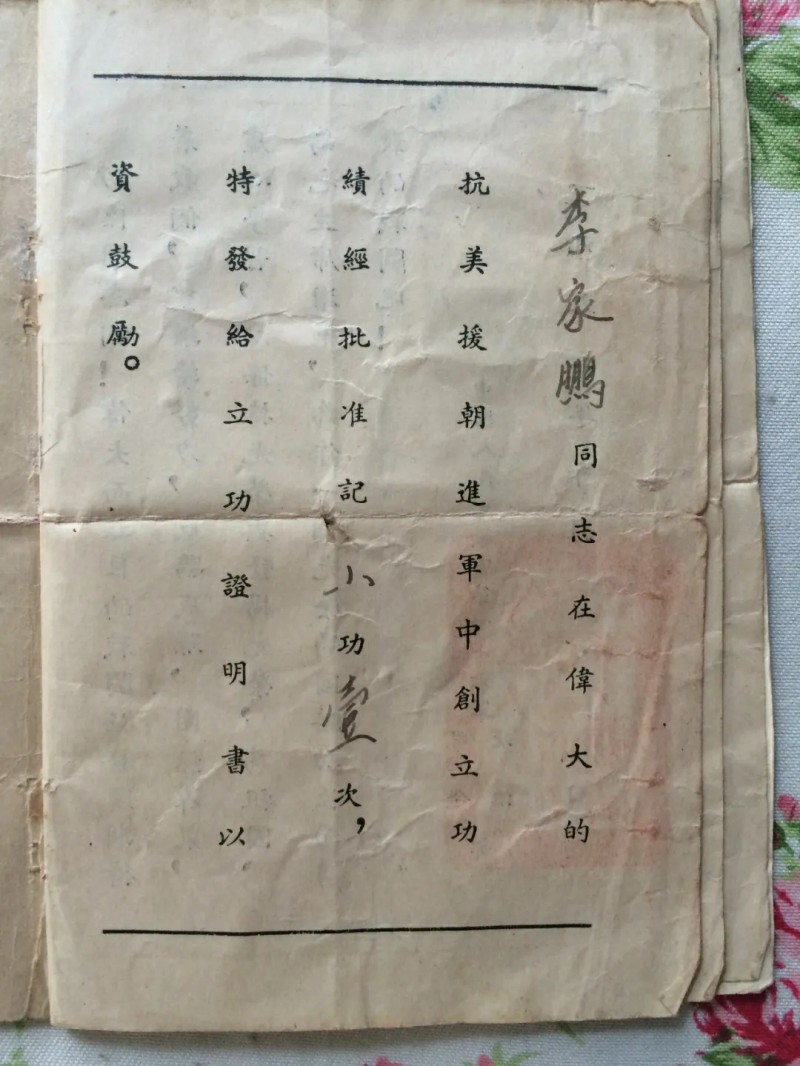 李家鵬同志在偉大的
抗美援朝進軍中創立功
績經批准記小功壹次，
特發給立功證明書以
資鼓勵。